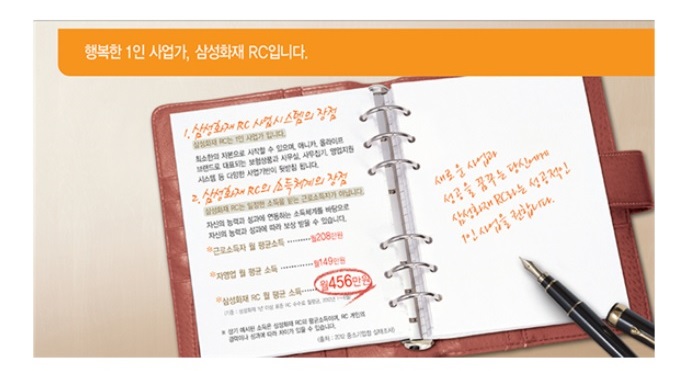 행복한 1인 사업가, 삼성화재 RC입니다.
1. 삼성화재 RC 사업시스템의 장점
삼성화재 RC는 1인 사업가 입니다.
최소한의 자본으로 시작할 수 있으며, 애니카, 올라이프
브랜드로 대표되는 보험상품과 사무실, 사무집기, 영업지원
시스템 등 다양한 사업기반이 뒷받침 됩니다.
2. 삼성화재 RC의 소득체계의 장점
삼성화재 RC는 일정한 소득을 받는 근로소득자가 아닙니다.
자신의 능력과 성과에 연동하는 소득체계를 바탕으로
자신의 능력과 성과에 따라 보상 받을 수 있습니다.
근로소득자 월 평균소득 ········ 월208만원
자영업 월 평균 소득 ············ 월149만원
삼성화재 RC 월 평균 소득····· 월456만원
※ 상기 예시된 소득은 삼성화재 RC의 평균소득이며, RC 개인의
경력이나 성과에 따라 차이가 있을 수 있습니다.
새로운 사업과
성공을 꿈꾸는 당신에게
삼성화재 RC라는 성공적인
1인 사업을 권합니다.